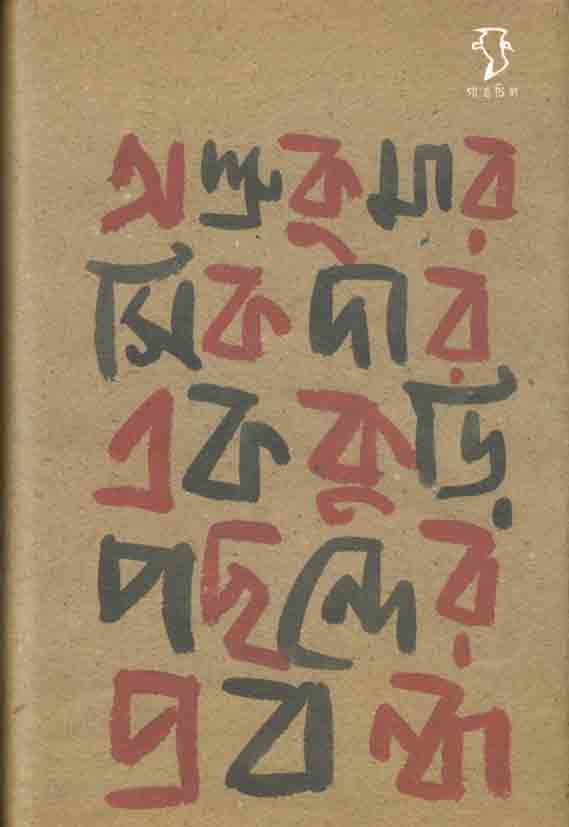 গাঙচিল
অশ্রুকুমার
সিকদার
এককুড়ি
পছন্দের
প্রবন্ধ